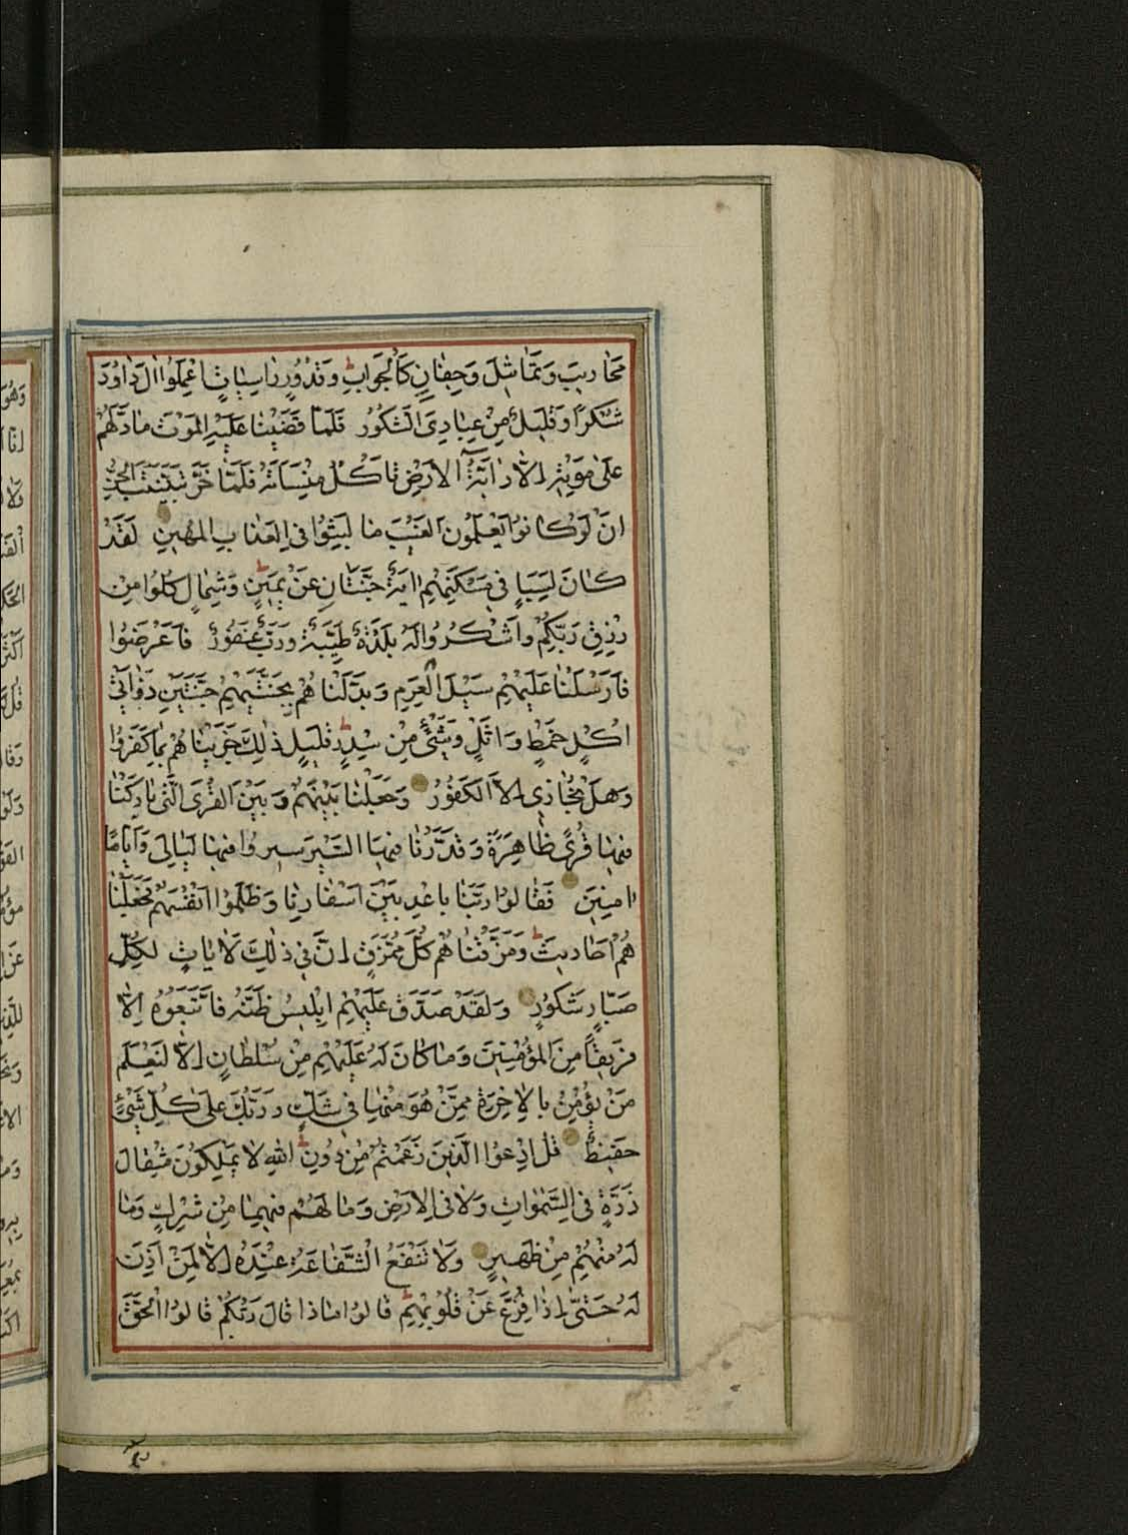 مَحَاريبَ وَتَمَاثيلَ وَجِفَانٍ كَالْجَوَابِ وَقُدُورٍ رَاسِيَاتٍ اعْمَلُوا الَ دَاوُدَ
شُكْرًا وَقَليلٌ مِنْ عِبَادِىَ الشَّكُورُ فَلَمَّا قَضَيْنَا عَلَيْهِ الْمَوْتَ مَا دَلَّهُمْ
عَلٰى مَوْتِهِ اِلَّا دَابَّةُ الْاَرْضِ تَاْكُلُ مِنْسَاَتَهُ فَلَمَّا خَرَّ تَبَيَّنَتِ الْجِنُّ
اَنْ لَوْ كَانُوا يَعْلَمُونَ الْغَيْبَ مَا لَبِثُوا فِى الْعَذَابِ الْمُهينِ لَقَدْ
كَانَ لِسَبَاٍ فى مَسْكَنِهِمْ ايَةٌ جَنَّتَانِ عَنْ يَمينٍ وَشِمَالٍ كُلُوا مِنْ
رِزْقِ رَبِّكُمْ وَاشْكُرُوا لَهُ بَلْدَةٌ طَيِّبَةٌ وَرَبٌّ غَفُورٌ فَاَعْرَضُوا
فَاَرْسَلْنَا عَلَيْهِمْ سَيْلَ الْعَرِمِ وَبَدَّلْنَاهُمْ بِجَنَّتَيْهِمْ جَنَّتَيْنِ ذَوَاتَىْ
اُكُلٍ خَمْطٍ وَاَثْلٍ وَشَىْءٍ مِنْ سِدْرٍ قَليلٍ ذٰلِكَ جَزَيْنَاهُمْ بِمَا كَفَرُوا
وَهَلْ نُجَازى اِلَّا الْكَفُورَ وَجَعَلْنَا بَيْنَهُمْ وَبَيْنَ الْقُرَى الَّتى بَارَكْنَا
فيهَا قُرًى ظَاهِرَةً وَقَدَّرْنَا فيهَا السَّيْرَ سيرُوا فيهَا لَيَالِىَ وَاَيَّامًا
امِنينَ فَقَالُوا رَبَّنَا بَاعِدْ بَيْنَ اَسْفَارِنَا وَظَلَمُوا اَنْفُسَهُمْ فَجَعَلْنَا
هُمْ اَحَاديثَ وَمَزَّقْنَاهُمْ كُلَّ مُمَزَّقٍ اِنَّ فى ذٰلِكَ لَايَاتٍ لِكُلِّ
صَبَّارٍ شَكُورٍ وَلَقَدْ صَدَّقَ عَلَيْهِمْ اِبْليسُ ظَنَّهُ فَاتَّبَعُوهُ اِلَّا
فَريقًا مِنَ الْمُؤْمِنينَ وَمَا كَانَ لَهُ عَلَيْهِمْ مِنْ سُلْطَانٍ اِلَّا لِنَعْلَمَ
مَنْ يُؤْمِنُ بِالْاخِرَةِ مِمَّنْ هُوَ مِنْهَا فى شَكٍّ وَرَبُّكَ عَلٰى كُلِّ شَىْءٍ
حَفيظٌ قُلِ ادْعُوا الَّذينَ زَعَمْتُمْ مِنْ دُونِ اللهِ لَا يَمْلِكُونَ مِثْقَالَ
ذَرَّةٍ فِى السَّمٰوَاتِ وَلَا فِى الْاَرْضِ وَمَا لَهُمْ فيهِمَا مِنْ شِرْكٍ وَمَا
لَهُ مِنْهُمْ مِنْ ظَهيرٍ وَلَا تَنْفَعُ الشَّفَاعَةُ عِنْدَهُ اِلَّا لِمَنْ اَذِنَ
لَهُ حَتّٰى اِذَا فُزِّعَ عَنْ قُلُوبِهِمْ قَالُوا مَاذَا قَالَ رَبُّكُمْ قَالُوا الْحَقَّ